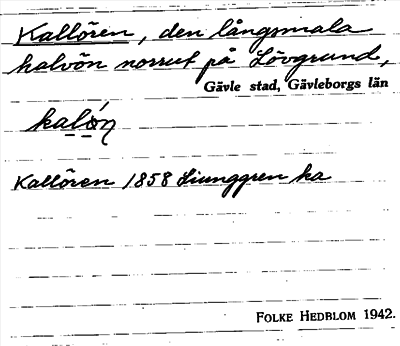 Kallören, den långsmala
halvön norrut på Lövgrund,
Gävle stad, Gävleborgs län
Kallören 1858 Ljunggren ka
FOLKE HEDBLOM 1942.